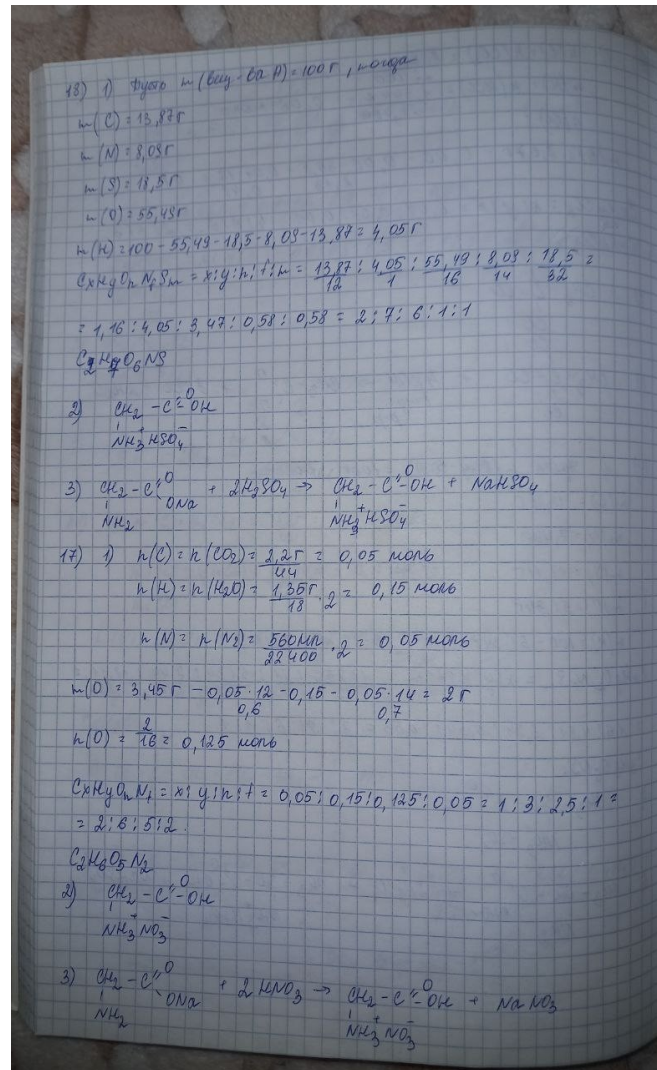 18) 1) Пусть m (вещ-ва A) = 100 г, тогда
m(C) = 13,87 г
m(N) = 8,09 г
m(S) = 18,5 г
m(O) = 55,49 г
m(H) = 100 - 55,49 - 18,5 - 8,09 - 13,87 = 4,05 г
CxHyOnNtSm = x : y : n : t : m = 13,87/12 : 4,05/1 : 55,49/16 : 8,09/14 : 18,5/32 =
= 1,16 : 4,05 : 3,47 : 0,58 : 0,58 = 2 : 7 : 6 : 1 : 1
C2H7O6NS
2) CH2 - C =O - OH
NH3+ HSO4-
3) CH2 - C =O ONa + 2H2SO4 → CH2 - C =O - OH + NaHSO4
NH2 NH3+ HSO4-
17) 1) n(C) = n(CO2) = 2,2 г/44 = 0,05 моль
n(H) = n(H2O) = 1,35 г/18 · 2 = 0,15 моль
n(N) = n(N2) = 560 мл/22400 · 2 = 0,05 моль
m(O) = 3,45 г - 0,05 · 12 - 0,15 - 0,05 · 14 = 2 г
0,6 0,7
n(O) = 2/16 = 0,125 моль
CxHyOnNt = x : y : n : t = 0,05 : 0,15 : 0,125 : 0,05 = 1 : 3 : 2,5 : 1 =
= 2 : 6 : 5 : 2.
C2H6O5N2
2) CH2 - C =O - OH
NH3+ NO3-
3) CH2 - C =O ONa + 2HNO3 → CH2 - C =O - OH + NaNO3
NH2 NH3+ NO3-